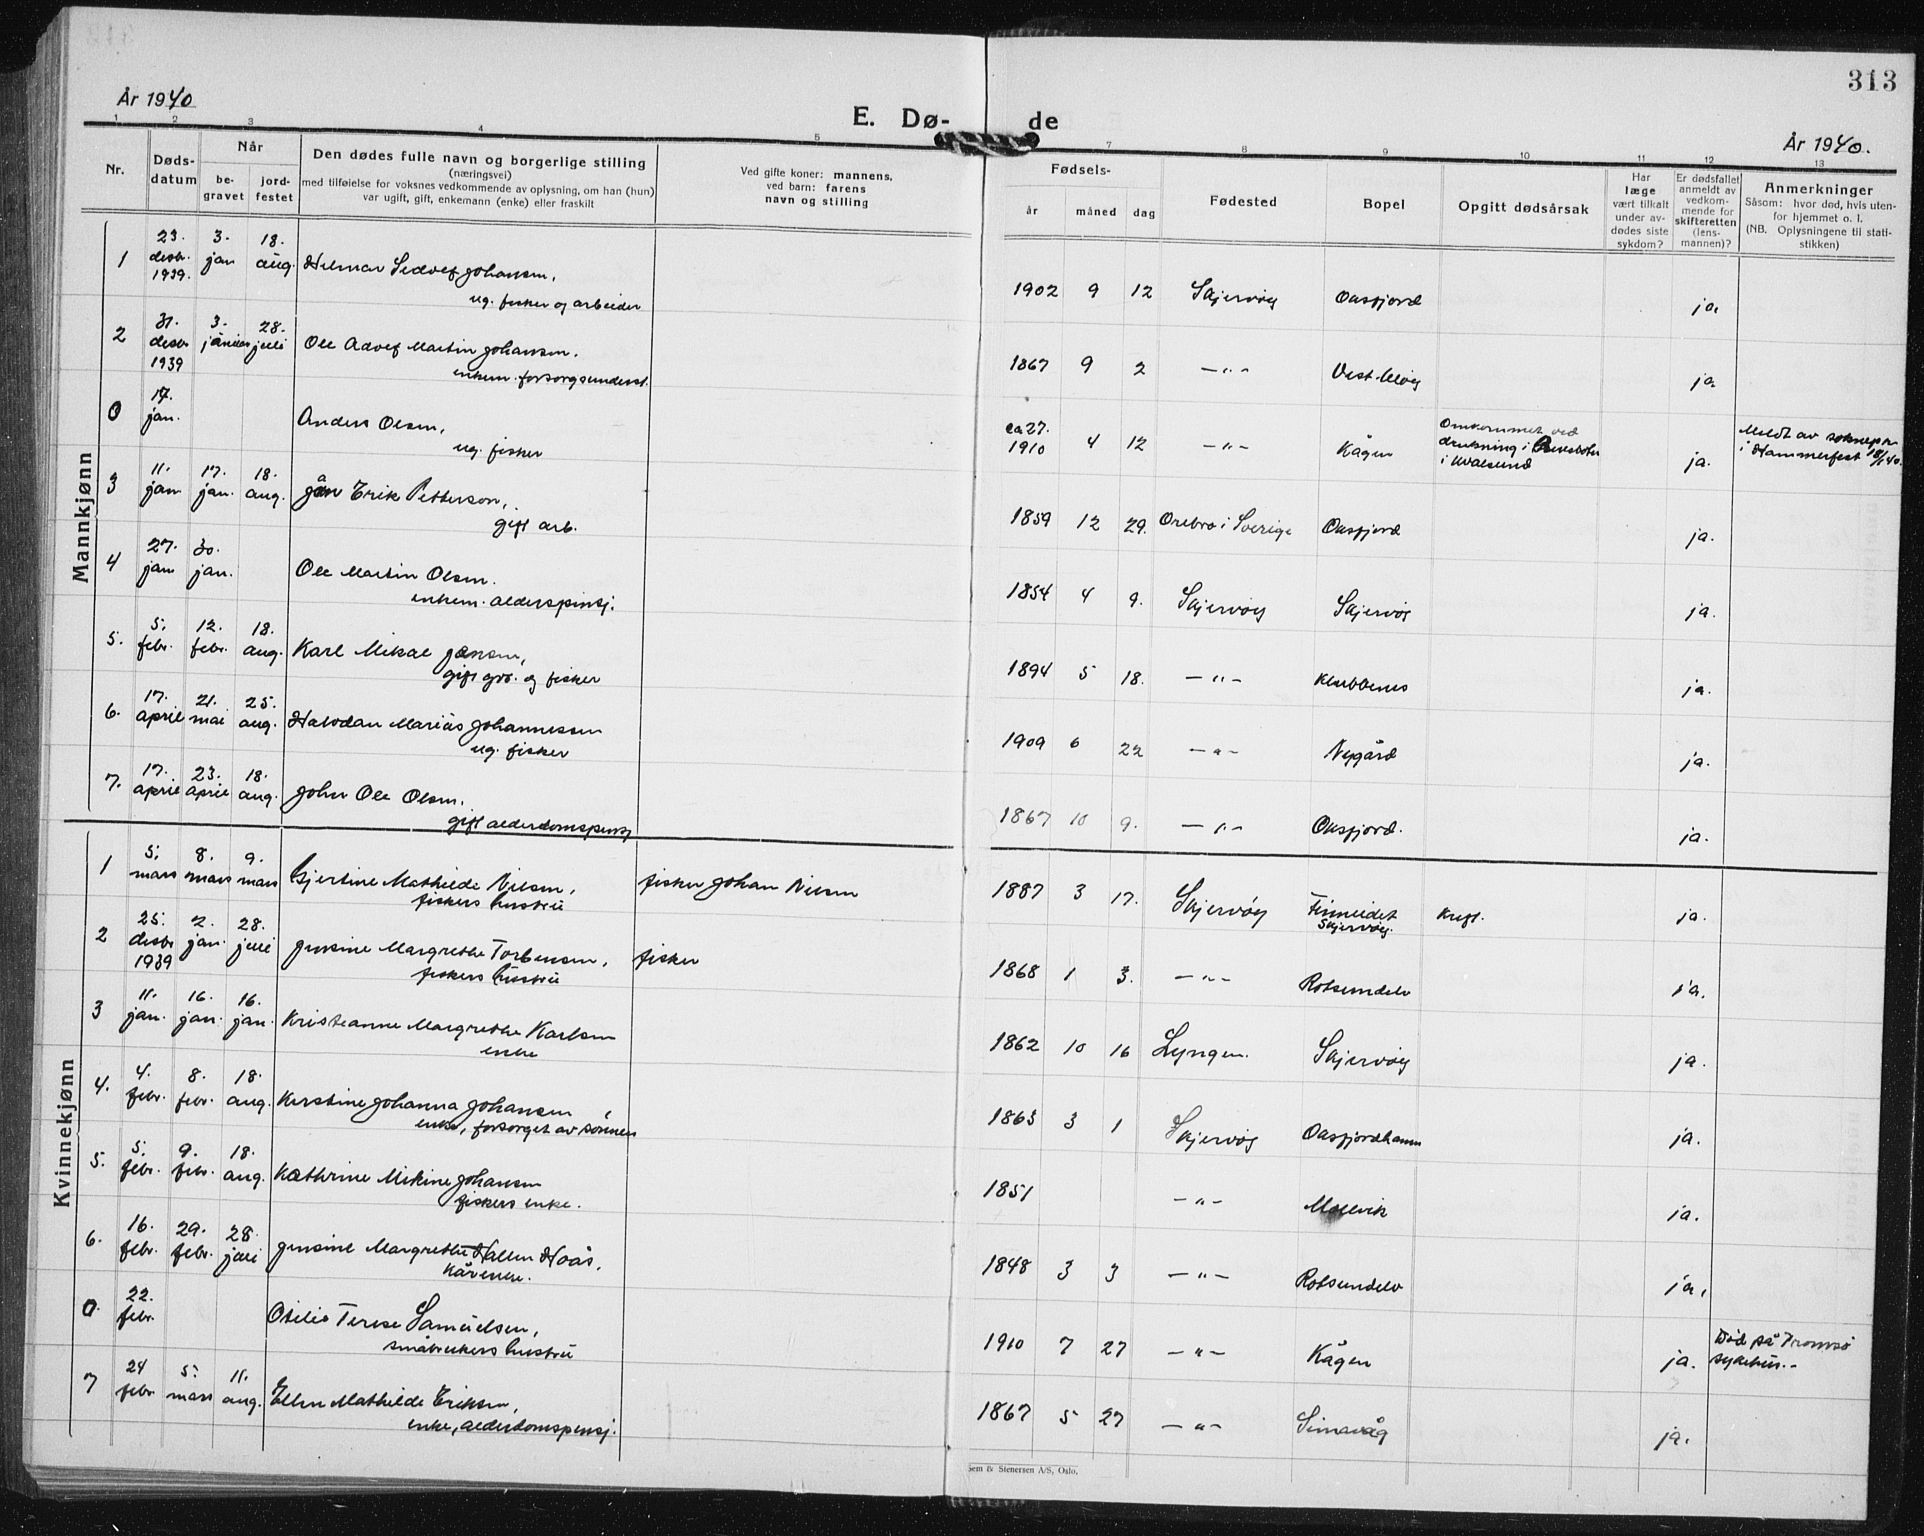 313
År 1940
E. Dø- de
År 1940.
1 2 3 4 5 7 8 9 10 11 12 13
Nr.
Døds-
datum
Når
be-
gravet
jord-
festet
Den dødes fulle navn og borgerlige stilling
(næringsvei)
med tilføielse for voksnes vedkommende av oplysning, om han (hun)
var ugift, gift, enkemann (enke) eller fraskilt
Ved gifte koner: mannens,
ved barn: farens
navn og stilling
Fødsels-
år måned dag
Fødested
Bopel
Opgitt dødsårsak
Har
læge
vært tilkalt
under av-
dødes siste
sykdom?
Er dødsfallet
anmeldt av
vedkom-
mende for
skifteretten
(lens-
mannen)?
Anmerkninger
Såsom: hvor død, hvis uten-
for hjemmet o. l.
(NB. Oplysningene til stati-
stikken)
Mannkjønn
1 23. desbr. 1939. 3. jan 18. aug. Hilmar Sedvef Johansen, 1902 9 12 Skjervøy Oksfjord ja.
ug. fisker og arbeider
2 31. desbr 1939 3. januar 28. juli Ole Advef Martin Johansen. 1867 9 2 —"— ja
enkem. forsorgsunderst.
0 17. jan. Anders Olsen, ca 27. 1910 4 12 —"— Kågen Omkommet ved drukning i i Kvalsund ja. Meldt av soknepr. i Hammerfest 18/1 40.
ug. fisker
3 11. jan 17. jan. 18. aug. Jan Erik Petterson, 1859 12 29. Orebro i Sverige Oksfjord ja.
gift arb.
4 27. jan 30. jan. Ole Martin Olsen. 1854 4 9. Skjervøy Skjervøy ja.
enkem. alderspensj.
5. 5. febr. 12. febr. 18. aug. Karl Mikal Jensen, 1894 5 18. —"— Klubbenes ja.
gift gbr. og fisker
6. 17. april 21. mai 25. aug. Halvdan Marius Johannessen 1909 6 22 —"— Nygård ja.
ug. fisker
7. 17. april 23. april 18. aug. Johan Ole Olsen. 1867 10 9. —"— Oksfjord. ja.
gift alderdomspensj
Kvinnekjønn
1 5. mars 8. mars 9. mars Gjertine Mathilde Nilsen, fisker Johan Nilsen 1887 3 17. Skjervøy Finneidet Skjervøy. Kreft. ja.
fiskers hustru
2 25. desbr 1939 2. jan. 28. juli Jensine Margrethe Torbensen, fisker 1868 1 3. —"— Rotsundelv ja.
fiskers hustru
3 11. jan. 16. jan. 16. jan. Kristianne Margrethe Karlsen 1862 10 16 Lyngen. Skjervøy ja.
enke
4. 4. febr. 8. febr. 18. aug. Kerstine Johanna Johansen, 1863 3 1 Skjervøy Oksfjordhamn ja.
enke, forsorget av sønnen
5. 5. febr. 9. febr. 18. aug. Kathrine Mikine Johansen 1851 —"— Mollvik ja.
fiskers enke.
6. 16. febr. 29. febr. 28. juli Jensine Margrethe Hallen Hoås, 1848 3 3 —"— Rotsundelv ja.
Kårenke.
0. 22. febr. Otilie Terese Samuelsen, 1910 7 27 —"— Kågen ja. Død på Tromsø sykehus.-
småbrukers hustru
7 24 febr. 5. mars 11. aug. Ellen Mathilde Eriksen, 1867 5 27 —"— Simavåg ja.
enke, alderdomspensj.
Sem & Stenersen A/S, Oslo.